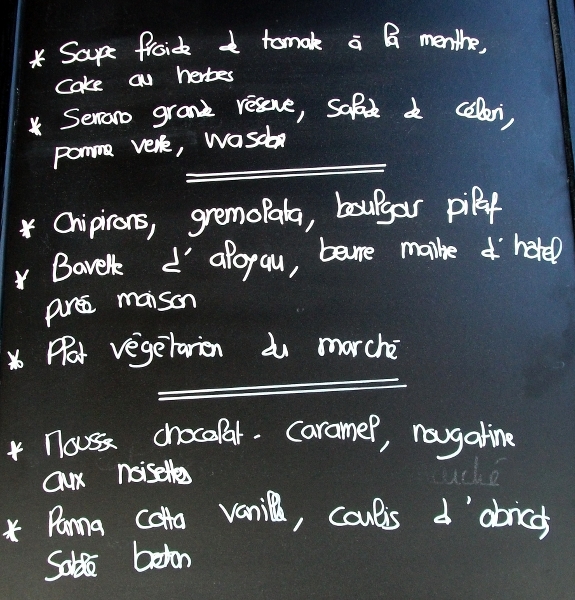 * Soupe froide de tomate à la menthe,
cake au herbes
* Serrano grande réserve, salade de céleri,
pomme verte, wasabi
* Chipirons, gremolata, boulgour pilaf
* Bavette d'aloyau, beurre maître d'hotel
purée maison
* Plat végétarien du marché
* Mousse chocolat - caramel, nougatine
aux noisettes
* Panna cotta vanille, coulis d'abricot,
Sablé breton